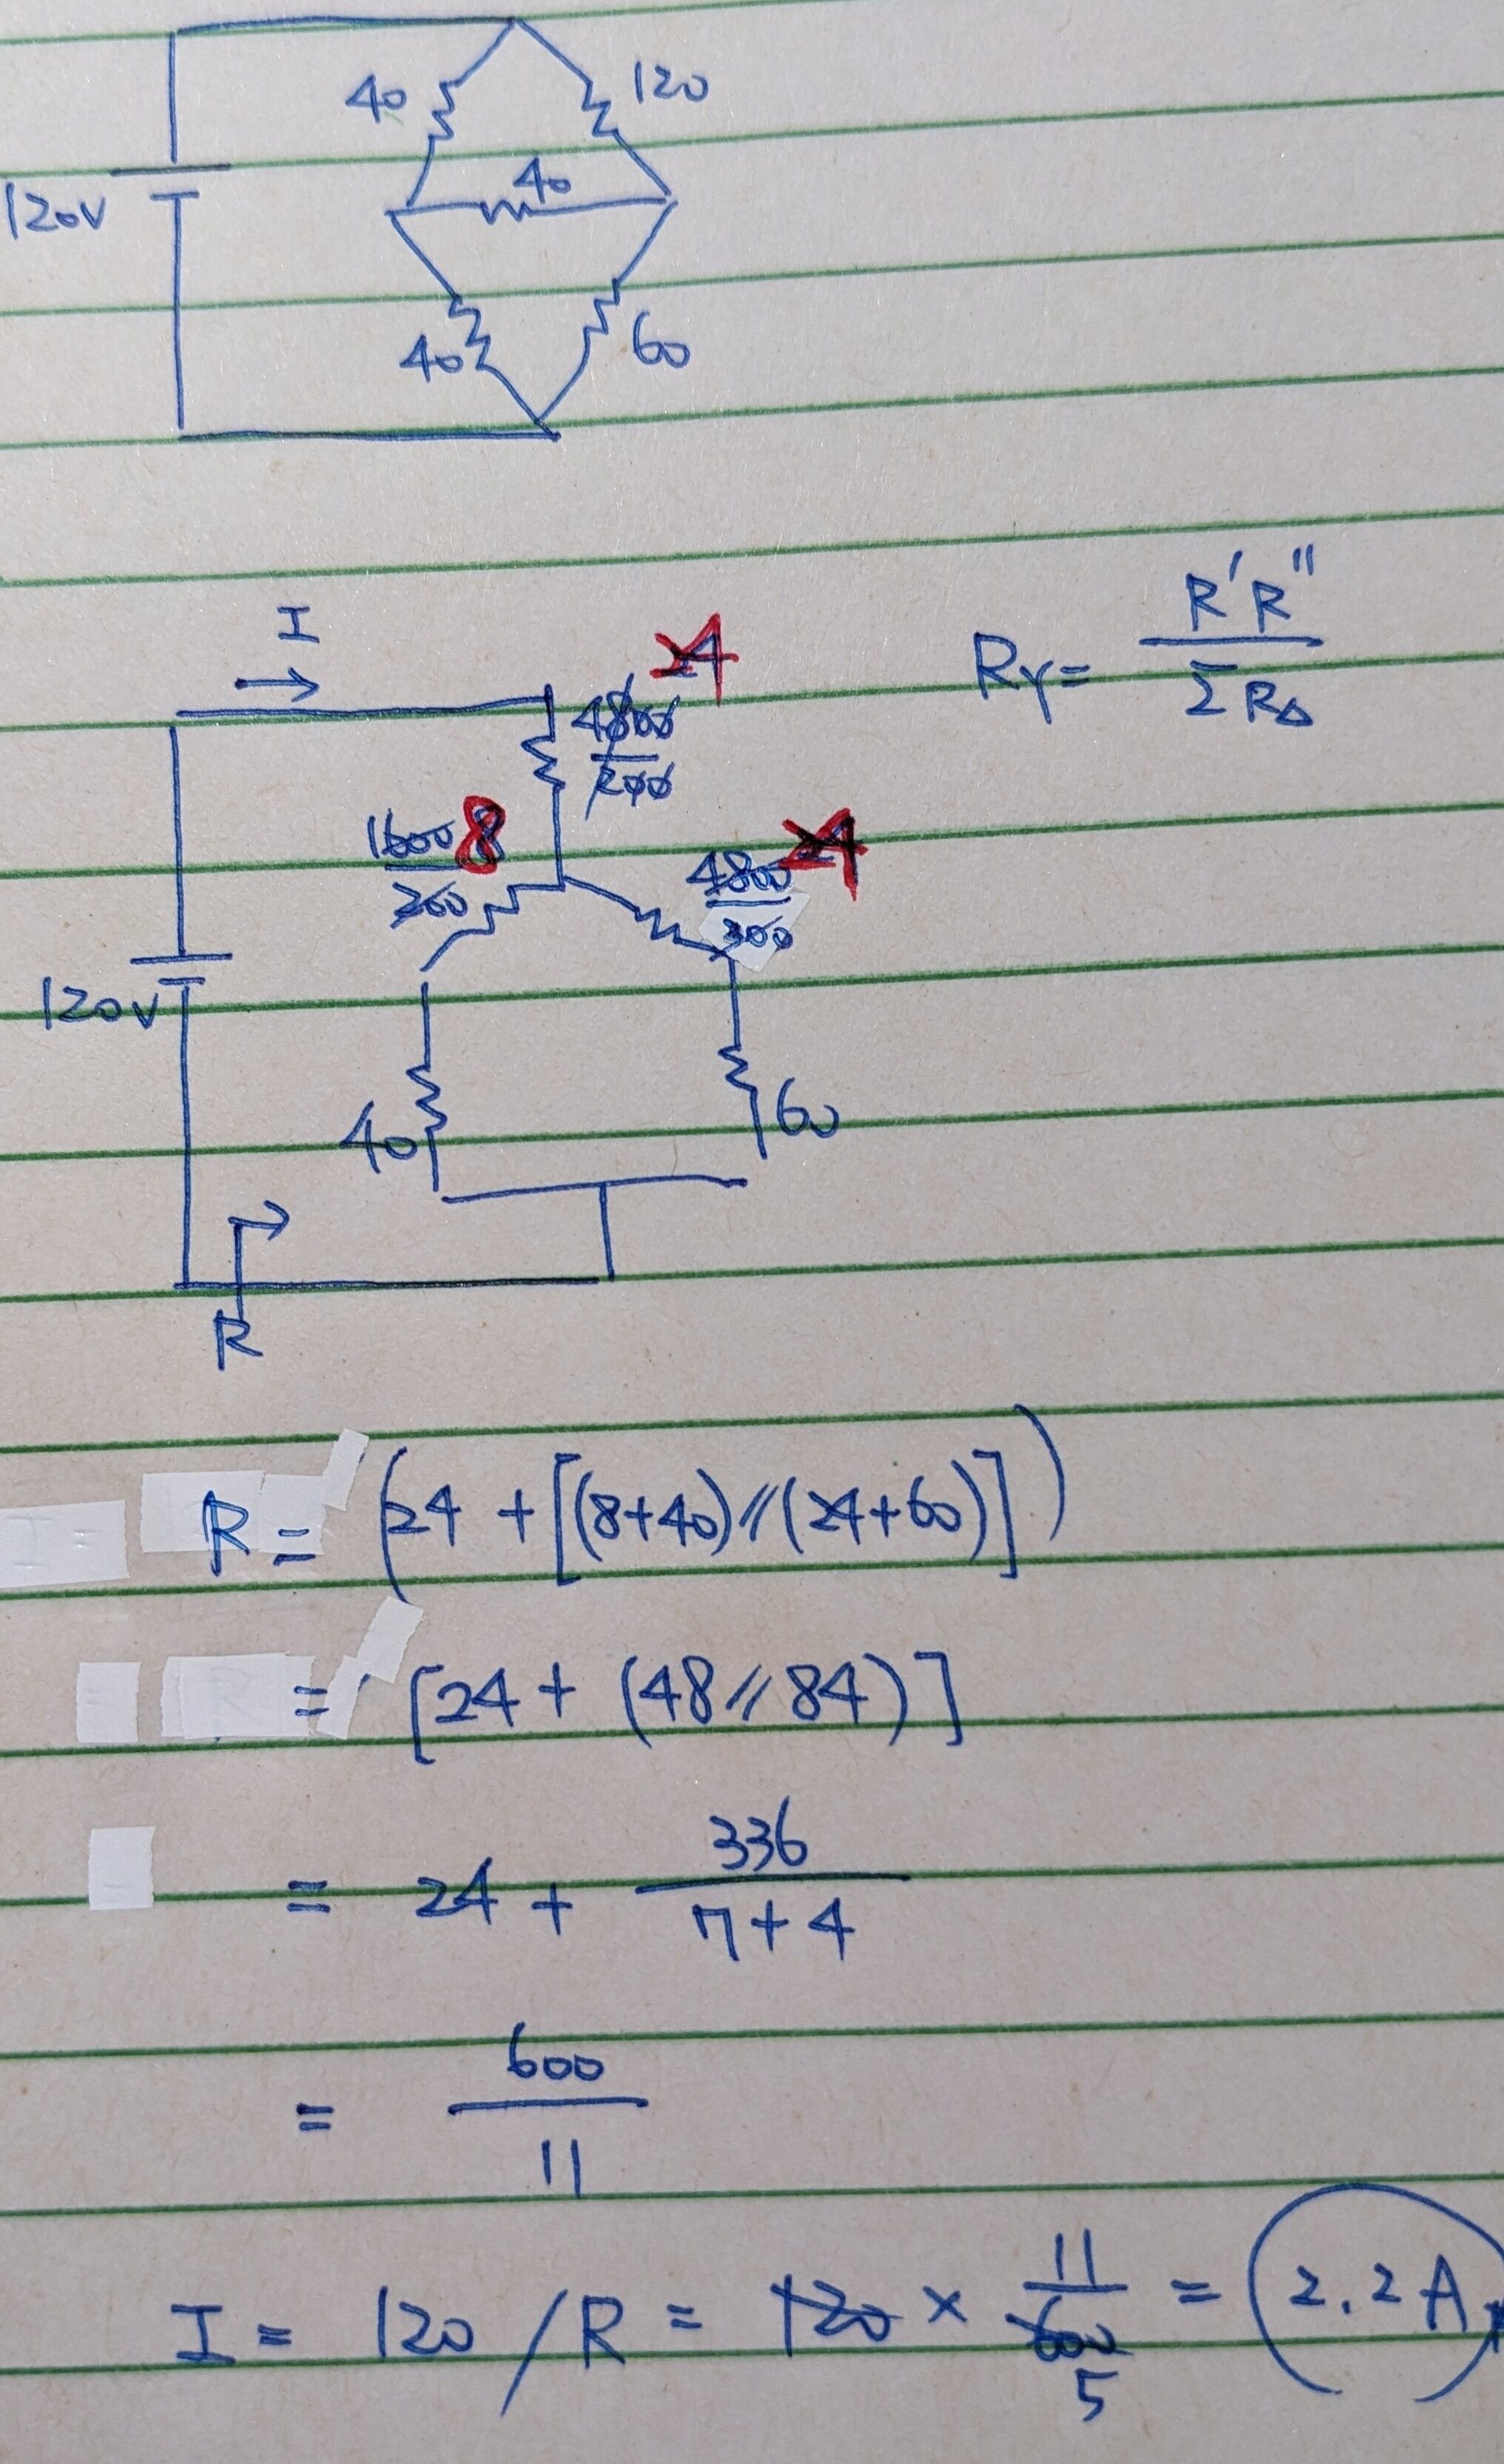 40 120
40
120V
40 60
I
24
4800
200
R_Y = R'R'' / ΣR_Δ
1600 8
200
4800 24
300
120V
40 60
R
R = (24 + [(8+40)//(24+60)])
= [24 + (48//84)]
= 24 + 336 / 7+4
= 600 / 11
I = 120 / R = 120 × 11 / 600 = 2.2A
5